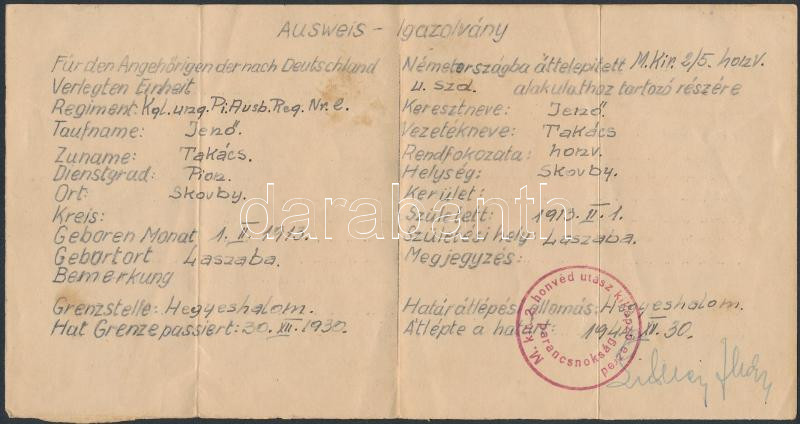 Ausweis - Igazolvány
Für den Angehörigen der nach Deutschland
Verlegten Einheit
Regiment: Kgl. ung. Pi. Ausb. Reg. Nr. 2.
Taufname: Jenő.
Zuname: Takács.
Dienstgrad: Pion.
Ort: Skovby.
Kreis:
Geboren Monat 1. II. 1913.
Geburtort Laszaba.
Bemerkung
Grenzstelle: Hegyeshalom.
Hat Grenze passiert: 30. XII. 1930.
Németországba áttelepitett M. Kir. 2/5. honv.
u. szd. alakulathoz tartozó részére
Keresztneve: Jenő.
Vezetékneve: Takács
Rendfokozata: honv.
Helység: Skovby.
Kerület:
Született: 1913. II. 1.
Születési hely Laszaba.
Megjegyzés:
Határátlépés állomás: Hegyeshalom.
Átlépte a határt: 1944. XII. 30.
M. kir. 2. honvéd utász kiképző ezred
parancsnokság
darabanth